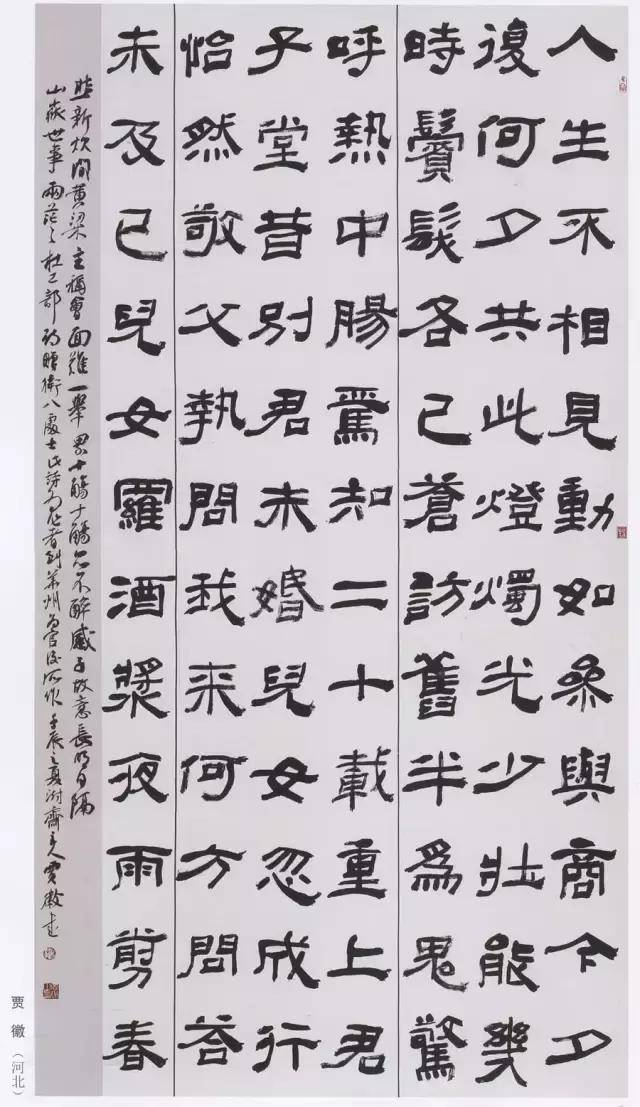 人生不相見動如參與商今夕
復何夕共此燈燭光少壯能幾
時鬢髮各已蒼訪舊半為鬼驚
呼熱中腸焉知二十載重上君
子堂昔別君未婚兒女忽成行
怡然敬父執問我來何方問答
未及已兒女羅酒漿夜雨剪春
韭新炊間黃粱主稱會面難一舉累十觴十觴亦不醉感子故意長明日隔
山嶽世事兩茫々杜工部贈衛八處士此詩為作者到華州為官後所作壬辰之夏齋主人賈徽書
贾徽（河北）